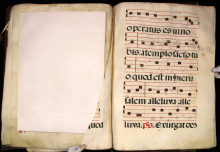 operatus es in no
bis a templo scto tu
o quod est in hieru
salem alleluya alle
luya. ps. Exurgat